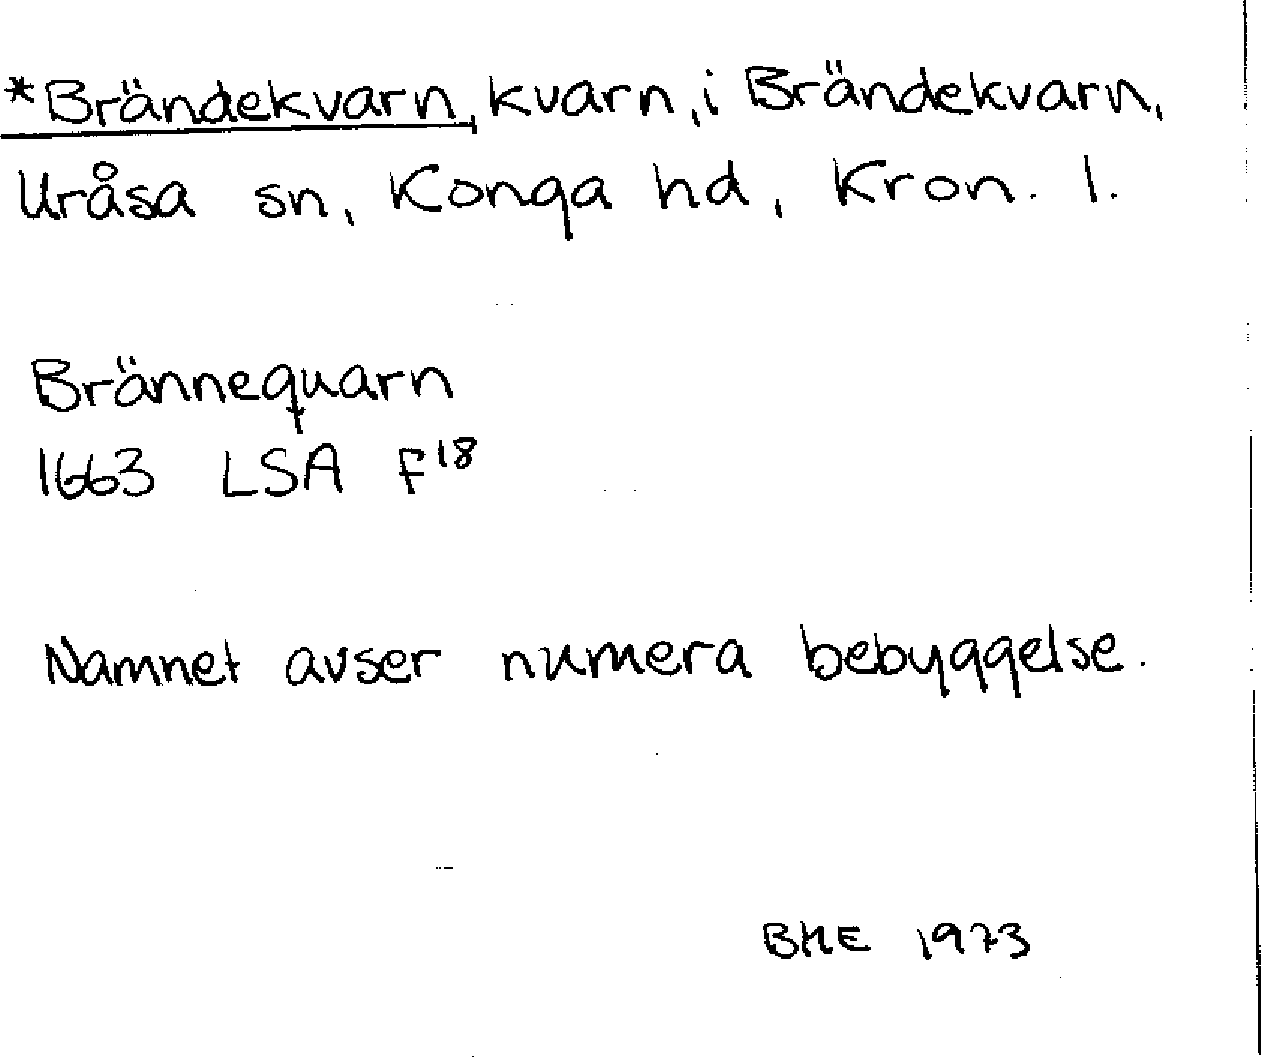 *Brändekvarn, kvarn, i Brändekvarn,
Uråsa sn, Konga hd, Kron. l.
Brännequarn
1663 LSA F18
Namnet avser numera bebyggelse.
BME 1973